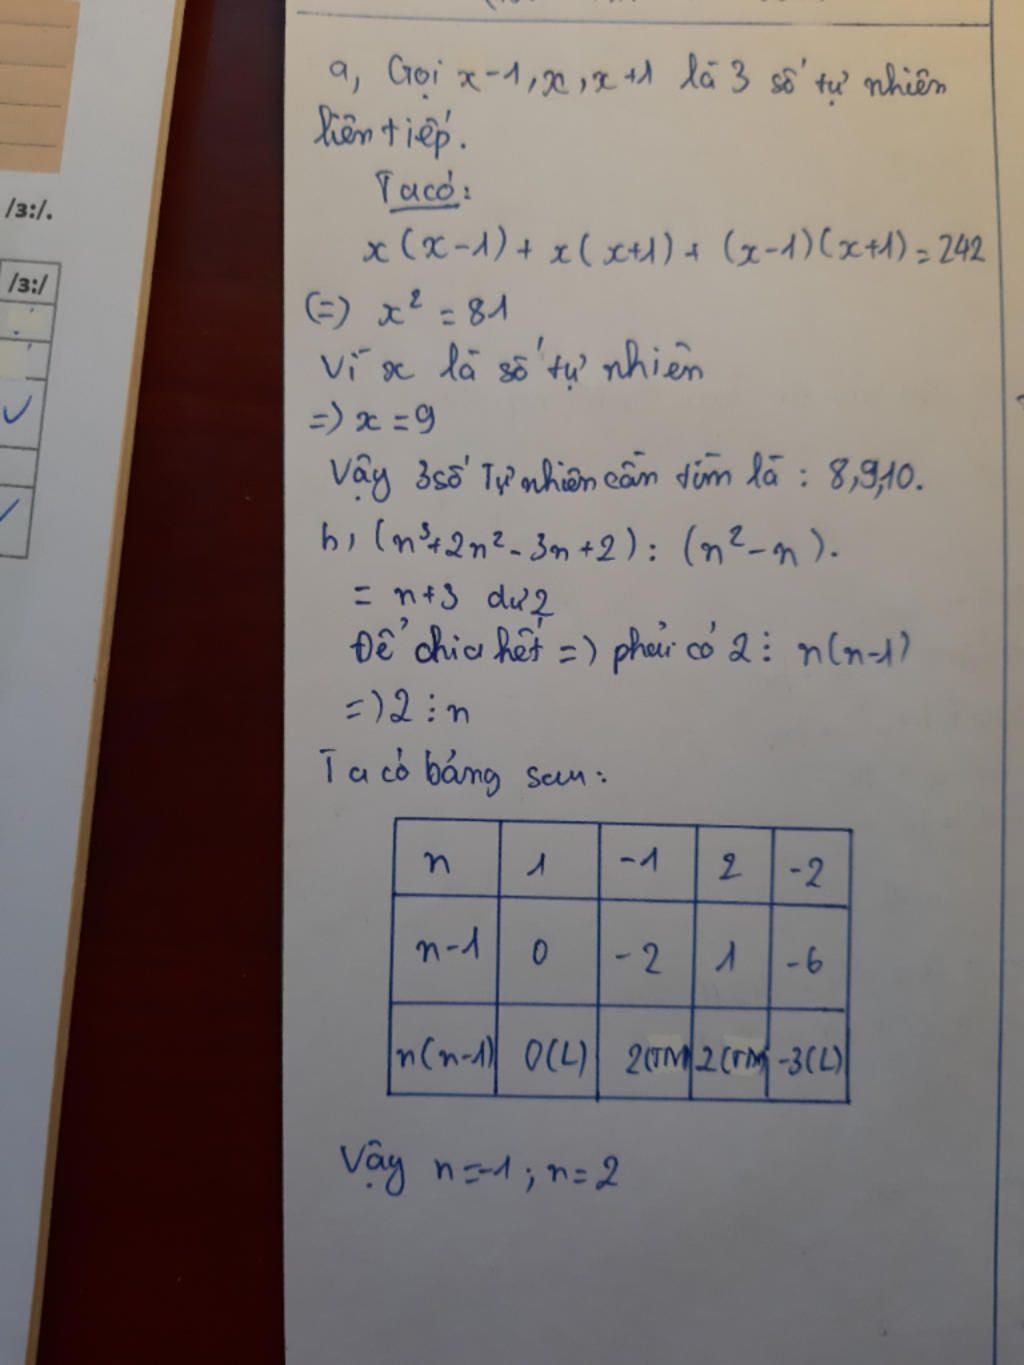 /ɜː/.
/ɜː/
a, Gọi x-1, x, x+1 là 3 số tự nhiên
liên tiếp.
Ta có:
x(x-1) + x(x+1) + (x-1)(x+1) = 242
(=) x² = 81
Vì x là số tự nhiên
=) x = 9
Vậy 3 số Tự nhiên cần tìm là : 8,9,10.
b, (n³+2n²-3n+2) : (n²-n).
= n+3 dư 2
Để chia hết =) phải có 2 ⋮ n(n-1)
=) 2 ⋮ n
Ta có bảng sau:
n 1 -1 2 -2
n-1 0 -2 1 -6
n(n-1) 0(L) 2(TM) 2(TM) -3(L)
Vậy n=-1 ; n=2